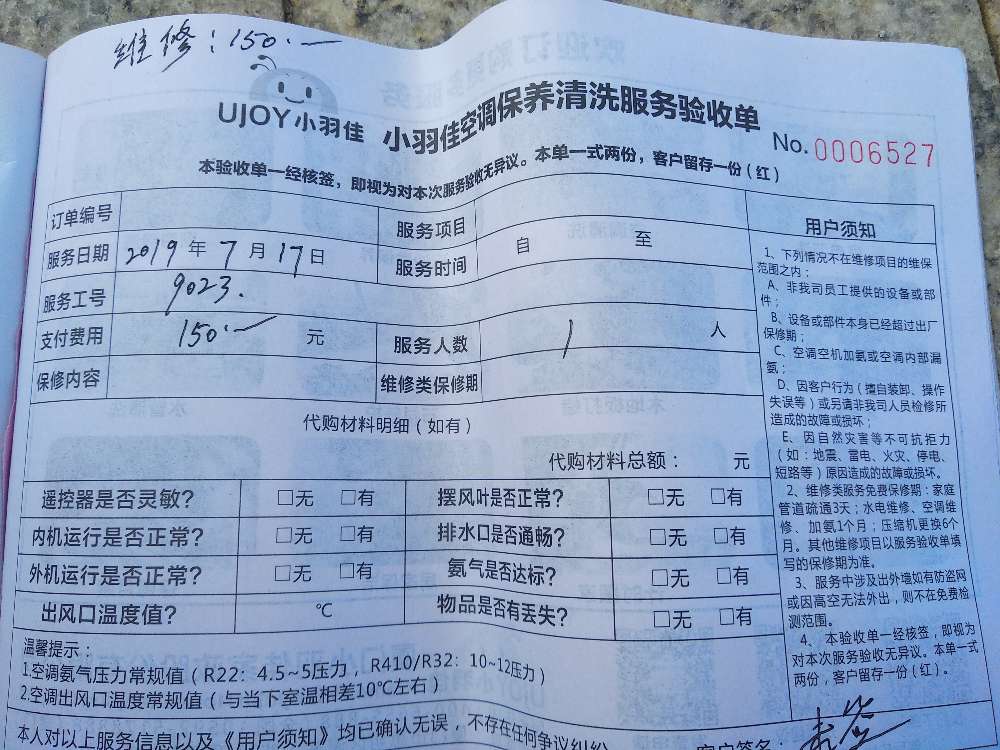 维修：150.一
UJOY小羽佳 小羽佳空调保养清洗服务验收单
No.0006527
本验收单一经核签，即视为对本次服务验收无异议。本单一式两份，客户留存一份（红）
订单编号 服务项目
服务日期 2019年7月17日 服务时间 自 至
服务工号 9023.
支付费用 150.一 元 服务人数 1 人
保修内容 维修类保修期
代购材料明细（如有）
代购材料总额： 元
遥控器是否灵敏？ □无 □有 摆风叶是否正常？ □无 □有
内机运行是否正常？ □无 □有 排水口是否通畅？ □无 □有
外机运行是否正常？ □无 □有 氨气是否达标？ □无 □有
出风口温度值？ ℃ 物品是否有丢失？ □无 □有
温馨提示：
1.空调氨气压力常规值（R22：4.5~5压力，R410/R32：10~12压力）
2.空调出风口温度常规值（与当下室温相差10℃左右）
本人对以上服务信息以及《用户须知》均已确认无误，不存在任何争议纠纷
客户签名：
用户须知
1、下列情况不在维修项目的维保
范围之内：
A、非我司员工提供的设备或部
件；
B、设备或部件本身已经超过出厂
保修期；
C、空调空机加氨或空调内部漏
氨；
D、因客户行为（擅自装卸、操作
失误等）或另请非我司人员检修所
造成的故障或损坏；
E、因自然灾害等不可抗拒力
（如：地震、雷电、火灾、停电、
短路等）原因造成的故障或损坏。
2、维修类服务免费保修期：家庭
管道疏通3天；水电维修、空调维
修、加氨1个月；压缩机更换6个
月。其他维修项目以服务验收单填
写的保修期为准。
3、服务中涉及出外墙如有防盗网
或因高空无法外出，则不在免费检
测范围。
4、本验收单一经核签，即视为
对本次服务验收无异议。本单一式
两份，客户留存一份（红）。